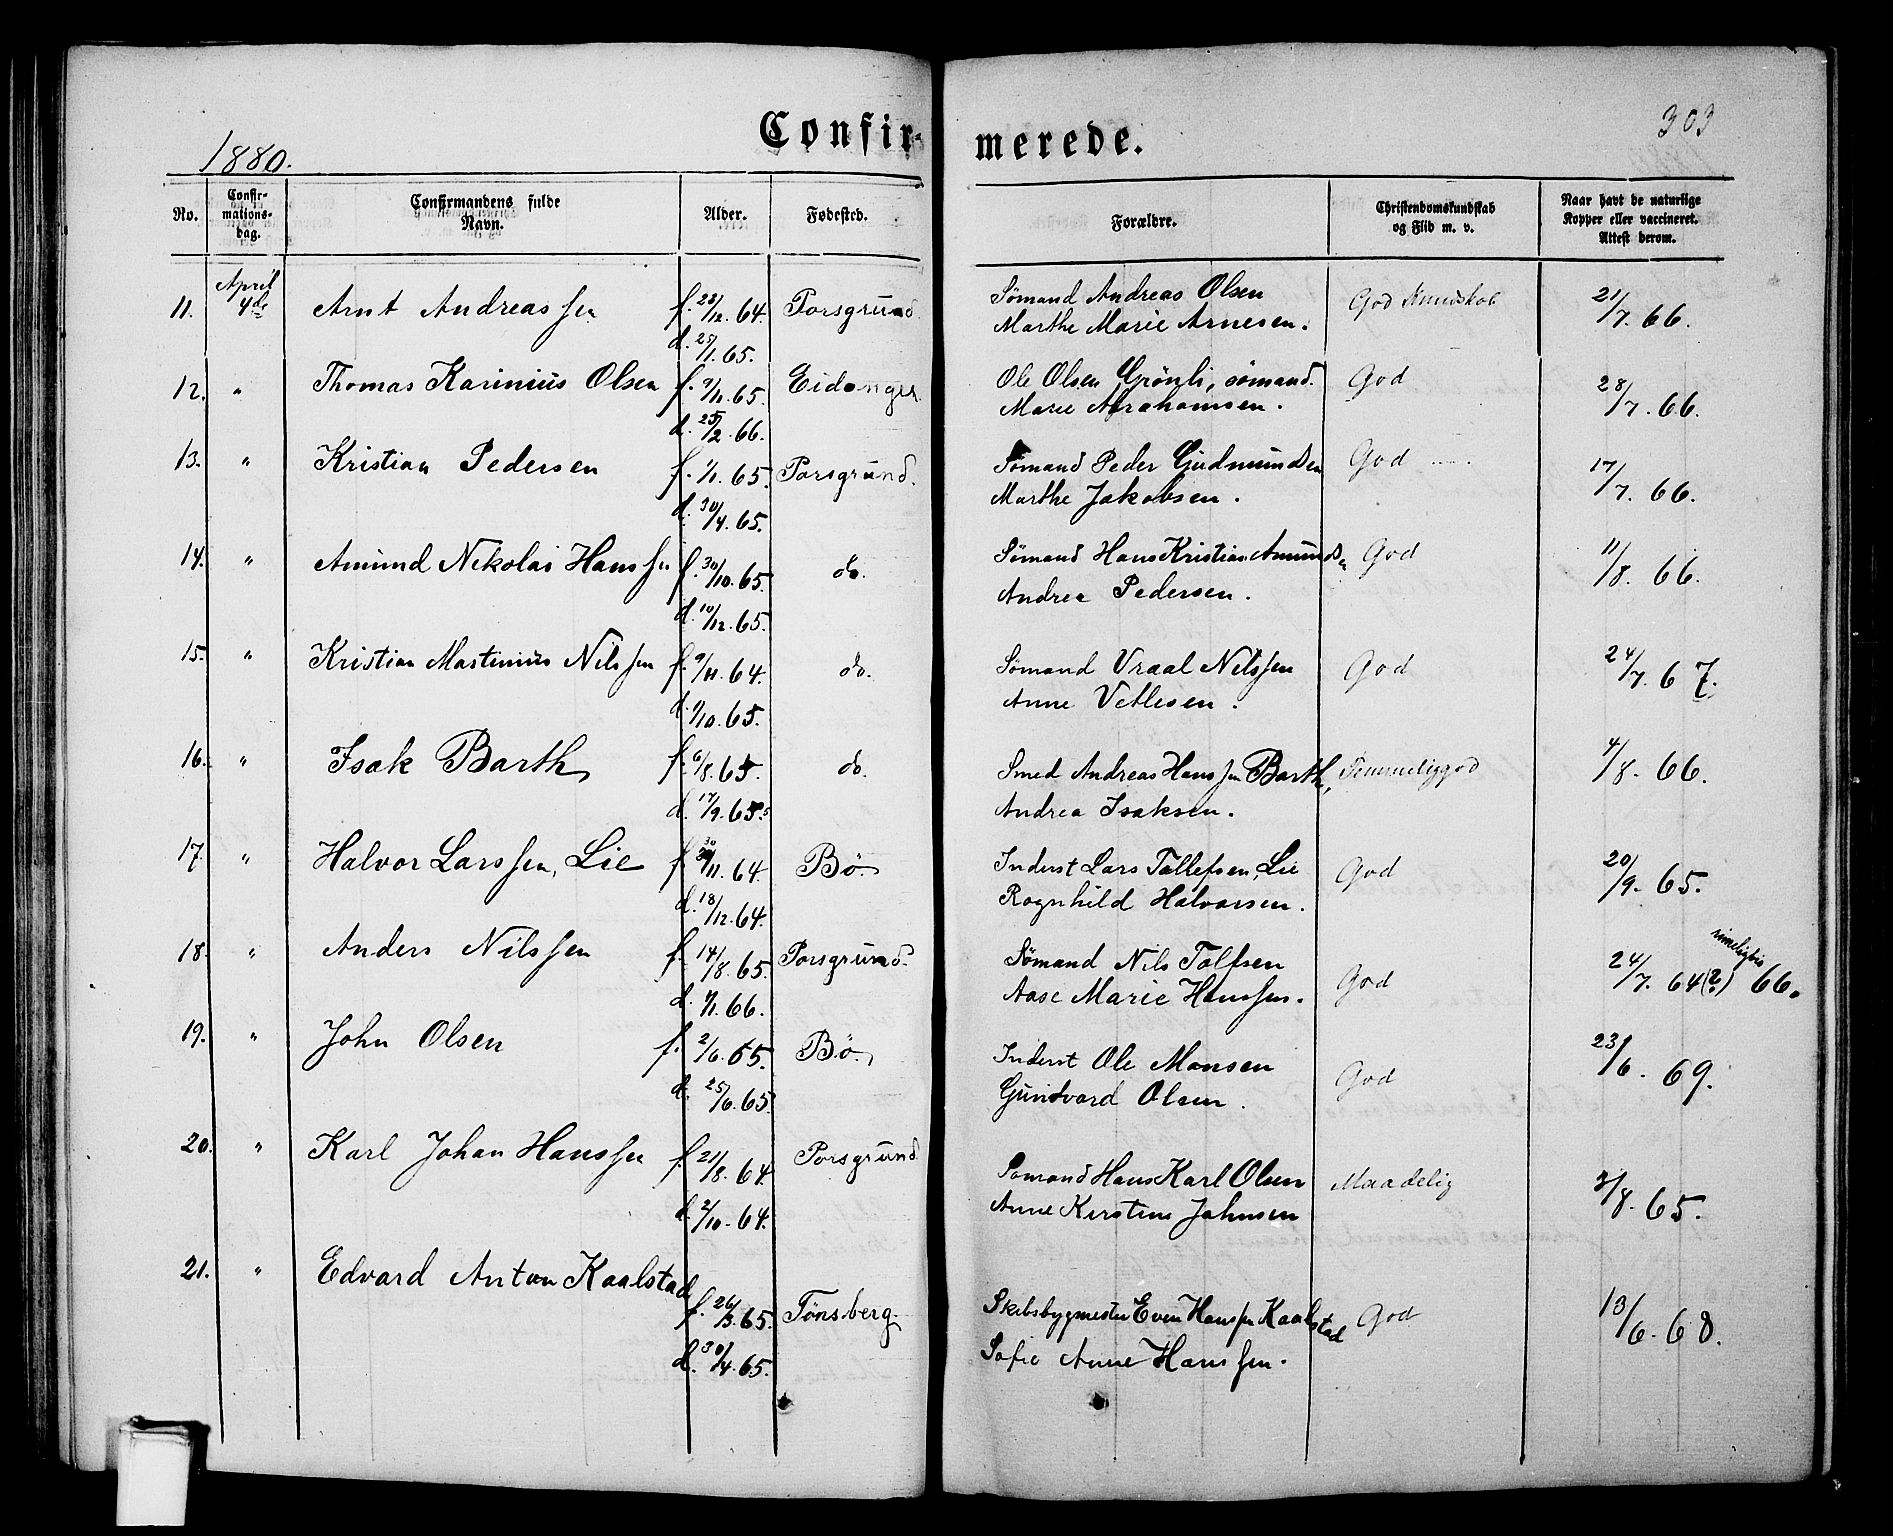 Confir-merede.
303
1880.
No. Confir-mations-dag. Confirmandens fulde Navn. Alder. Fødested. Forældre. Christendomskundskab og Flid m. v. Naar havt de naturlige Kopper eller vaccineret. Attest derom.
April
11. 4de Arnt Andreassen f. 28/12. 64. Porsgrund. Sømand Andreas Olsen God Kundskab 21/7. 66.
d. 25/1. 65. Marthe Marie Arnesen.
12. " Thomas Karinius Olsen f. 9/11. 65. Eidanger. Ole Olsen Grönli, sømand. God 28/7. 66.
d. 25/2. 66. Marie Abrahamsen.
13. " Kristian Pedersen f. 1/1. 65. Porsgrund. Sømand Peder Gudmundsen God 17/7. 66.
d. 30/4. 65. Marthe Jakobsen.
14. " Amund Nikolai Hanssen f. 30/10. 65. do. Sømand Hans Kristian Amundsen God 11/8. 66.
d. 10/12. 65. Andrea Pedersen.
15. " Kristian Martinius Nilssen f. 9/11. 64. do. Sømand Vraal Nilssen God 24/7. 67.
d. 1/10. 65. Anne Vetlesen.
16. " Isak Barth f. 6/8. 65. do. Smed Andreas Hanssen Barth, Temmelig god 4/8. 66.
d. 17/9. 65. Andrea Isaksen.
17. " Halvor Larssen, Lie f. 30/11. 64. Bø. Inderst Lars Tollefsen, Lie God 20/9. 65.
d. 18/12. 64. Ragnhild Halvorsen.
18. " Anders Nilssen f. 14/8. 65. Porsgrund. Sømand Nils Tolfsen God 24/7. 64(?) rimeligvis 66.
d. 1/1. 66. Aase Marie Hanssen.
19. " John Olsen f. 2/6. 65. Bø. Inderst Ole Monsen God 23/6. 69.
d. 25/6. 65. Gundvard Olsen.
20. " Karl Johan Hanssen f. 21/8. 64. Porsgrund. Sømand Hans Karl Olsen Maadelig 3/8. 65.
d. 2/10. 64. Anne Kirstine Johnsen
21. " Edvard Anton Kaalstad f. 26/3. 65. Tønsberg. Skibsbygmester Even Hanssen Kaalstad God 13/6. 68.
d. 30/4. 65. Sofie Anne Hanssen.